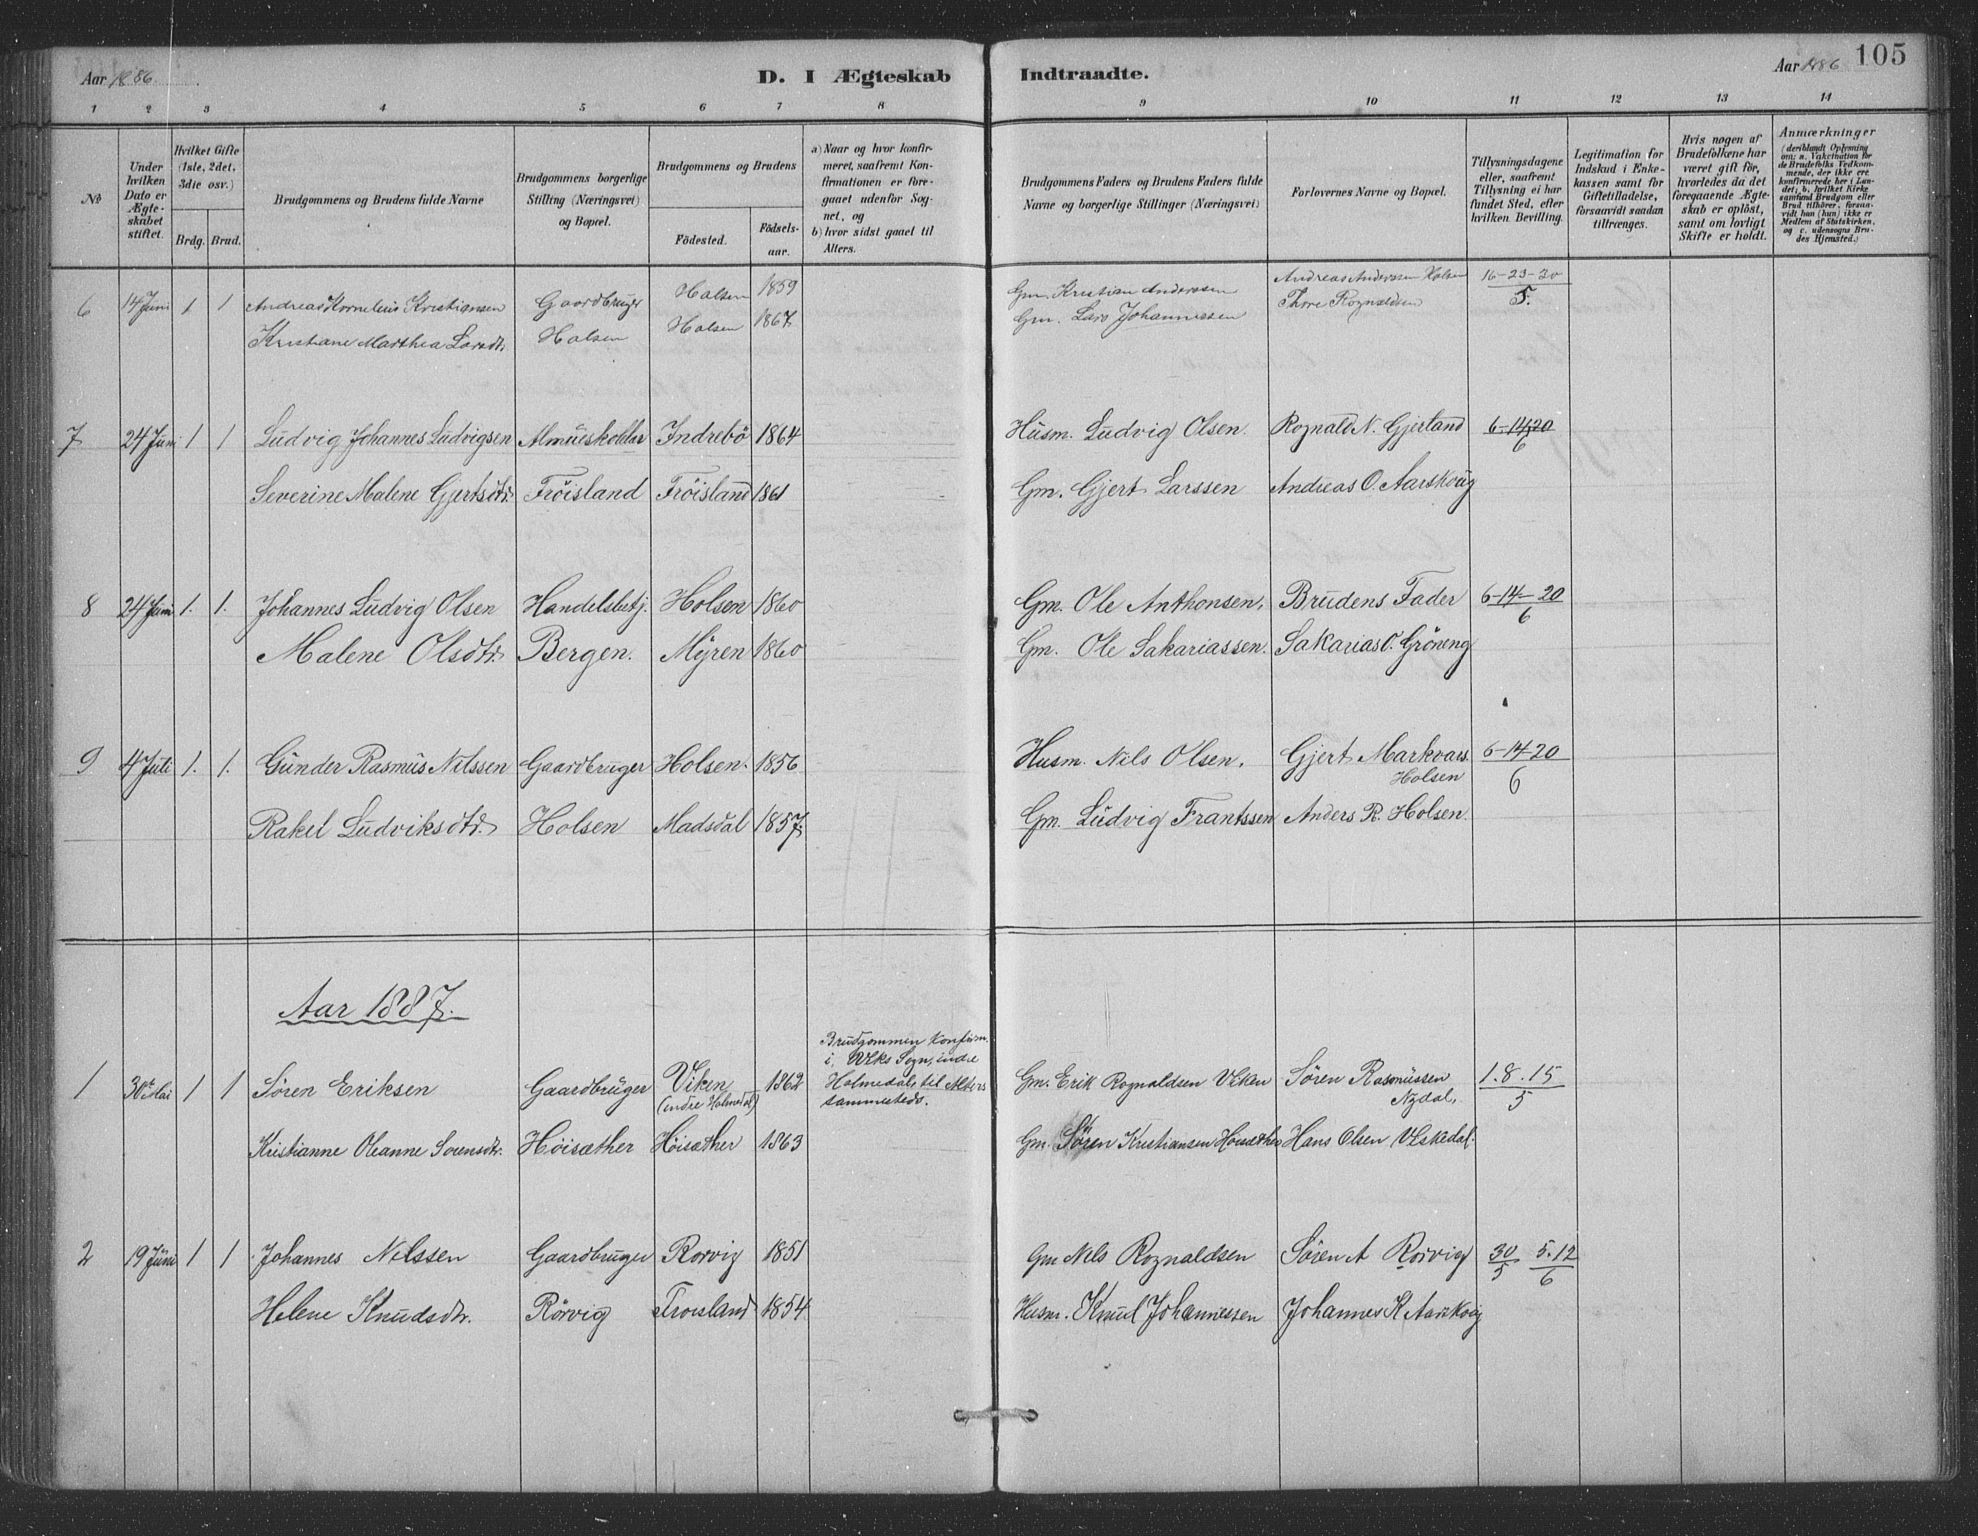 Aar 1886
D. I Ægteskab Indtraadte.
Aar 1886
105
1 2 3 4 5 6 7 8 9 10 11 12 13 14
No
Under hvilken Dato er Ægteskabet stiftet.
Hvilket Gifte (1ste, 2det, 3die osv.)
Brdg. Brud.
Brudgommens og Brudens fulde Navne
Brudgommens borgerlige Stilling (Næringsvei) og Bopæl.
Brudgommens og Brudens
Fødested. Fødselsaar.
a) Naar og hvor konfirmeret, saafremt Konfirmationen er foregaaet udenfor Sognet, og
b) hvor sidst gaaet til Alters.
Brudgommens Faders og Brudens Faders fulde Navne og borgerlige Stillinger (Næringsvei)
Forlovernes Navne og Bopæl.
Tillysningsdagene eller, saafremt Tillysning ei har fundet Sted, efter hvilken Bevilling.
Legitimation for Indskud i Enkekassen samt for Giftetilladelse, forsaavidt saadan tiltrænges.
Hvis nogen af Brudefolkene har været gift før, hvorledes da det foregaaende Ægteskab er opløst, samt om lovligt Skifte er holdt.
Anmærkninger
(deriblandt Oplysning om: a. Vakcination for de Brudefolks Vedkommende, der ikke ere konfirmerede her i Landet; b. hvilket Kirkesamfund Brudgom eller Brud tilhører, forsaavidt han (hun) ikke er Medlem af Statskirken, og c. udensogns Brudes Hjemsted.)
6 14 Juni 1 1 Andreas Kornelius Kristiansen Gaardbruger Holsen 1859 Gm. Kristian Anderssen Andreas Anderssen Holsen 16-23-30
5.
Kristiane Marthea Larsdtr. Holsen Holsen 1867 Gm. Lars Johannessen Thore Rognaldsen
7 24 Juni 1 1 Ludvig Johannes Ludvigsen Almueskolelær Indrebö 1864 Husm. Ludvig Olsen. Rognald N. Gjerland 6-14-20
6
Severine Malene Gjertsdtr. Fröisland Fröisland 1861 Gm. Gjert Larssen Andreas O. Aarskoug
8 24 Juni 1. 1. Johannes Ludvig Olsen Handelsbetj. Holsen 1860 Gm. Ole Anthonsen, Brudens Fader 6-14-20
6
Malene Olsdtr. Bergen. Myren 1860 Gm. Ole Sakariassen. Sakarias O. Gröneng
9 4 Juli 1. 1. Gunder Rasmus Nilssen Gaardbruger Holsen. 1856 Husm. Nils Olsen. Gjert Markvars. 6-14-20
Holsen 6
Rakel Ludviksdtr. Holsen Madsdal 1857. Gm. Ludvig Frantssen Anders R. Holsen.
Aar 1887.
Brudgommen konfirm.
i Sogn, indre
Holmedal, til Alters
sammesteds.
1 30te Mai 1 1 Søren Eriksen Gaardbruger Viken 1862 Gm. Erik Rognaldsen Viken Søren Rasmussen 1. 8. 15
(indre Holmedal) Nydal, 5
Kristianne Oleanne Sørensdtr. Høisæther Høisæther 1863 Gm. Søren Kristiansen Høisæther Hans Olsen
2 19 Juni 1 1 Johannes Nilssen Gaardbruger Rørvig 1851 Gm Nils Rognaldsen Søren A Rørvig 30 5. 12
5 6
Helene Knudsdtr. Rørvig Frøisland 1854 Husm. Knud Johannessen Johannes K Aarskoug